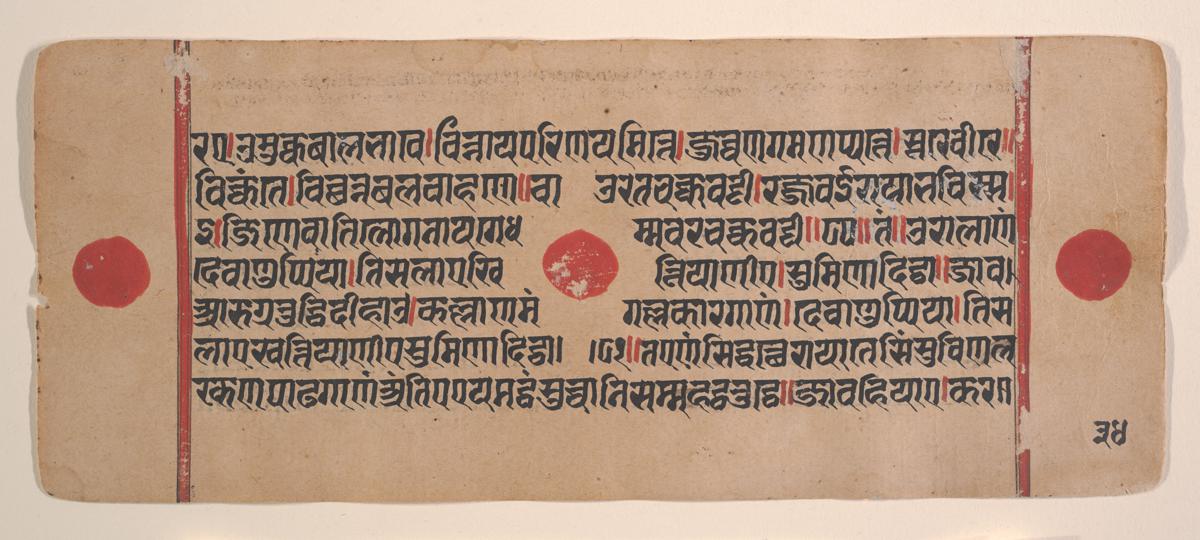 रए।उमुक्कबालभावे।विन्नायपरिणयमित्ते।जुव्वणगमणुपत्ते।सूरेवीरे॥
विक्कंते।विच्छिन्नबलवाहणे॥चा उरंतचक्कवट्टी।रज्जवई राया भविस्स
इ।जिणे वा तिलोगनायगे ध म्मवरचक्कवट्टी॥८०॥तं॥उरालाणं
देवाणुप्पिया।तिसलाए ख त्तियाणीए।सुमिणा दिट्ठा॥जाव।
आरुग्गतुट्ठिदीहाउ।कल्लाणमं गल्लकारगाणं।देवाणुप्पिया।तिस
लाए खत्तियाणीए सुमिणा दिट्ठा। ।८१॥तएणं सिद्धत्थे राया तेसिं सुविणल
रकणपाढगाणं अंतिए एयमट्ठं सुच्चा निसम्म हट्ठतुट्ठे॥जाव हियए।कर
३४